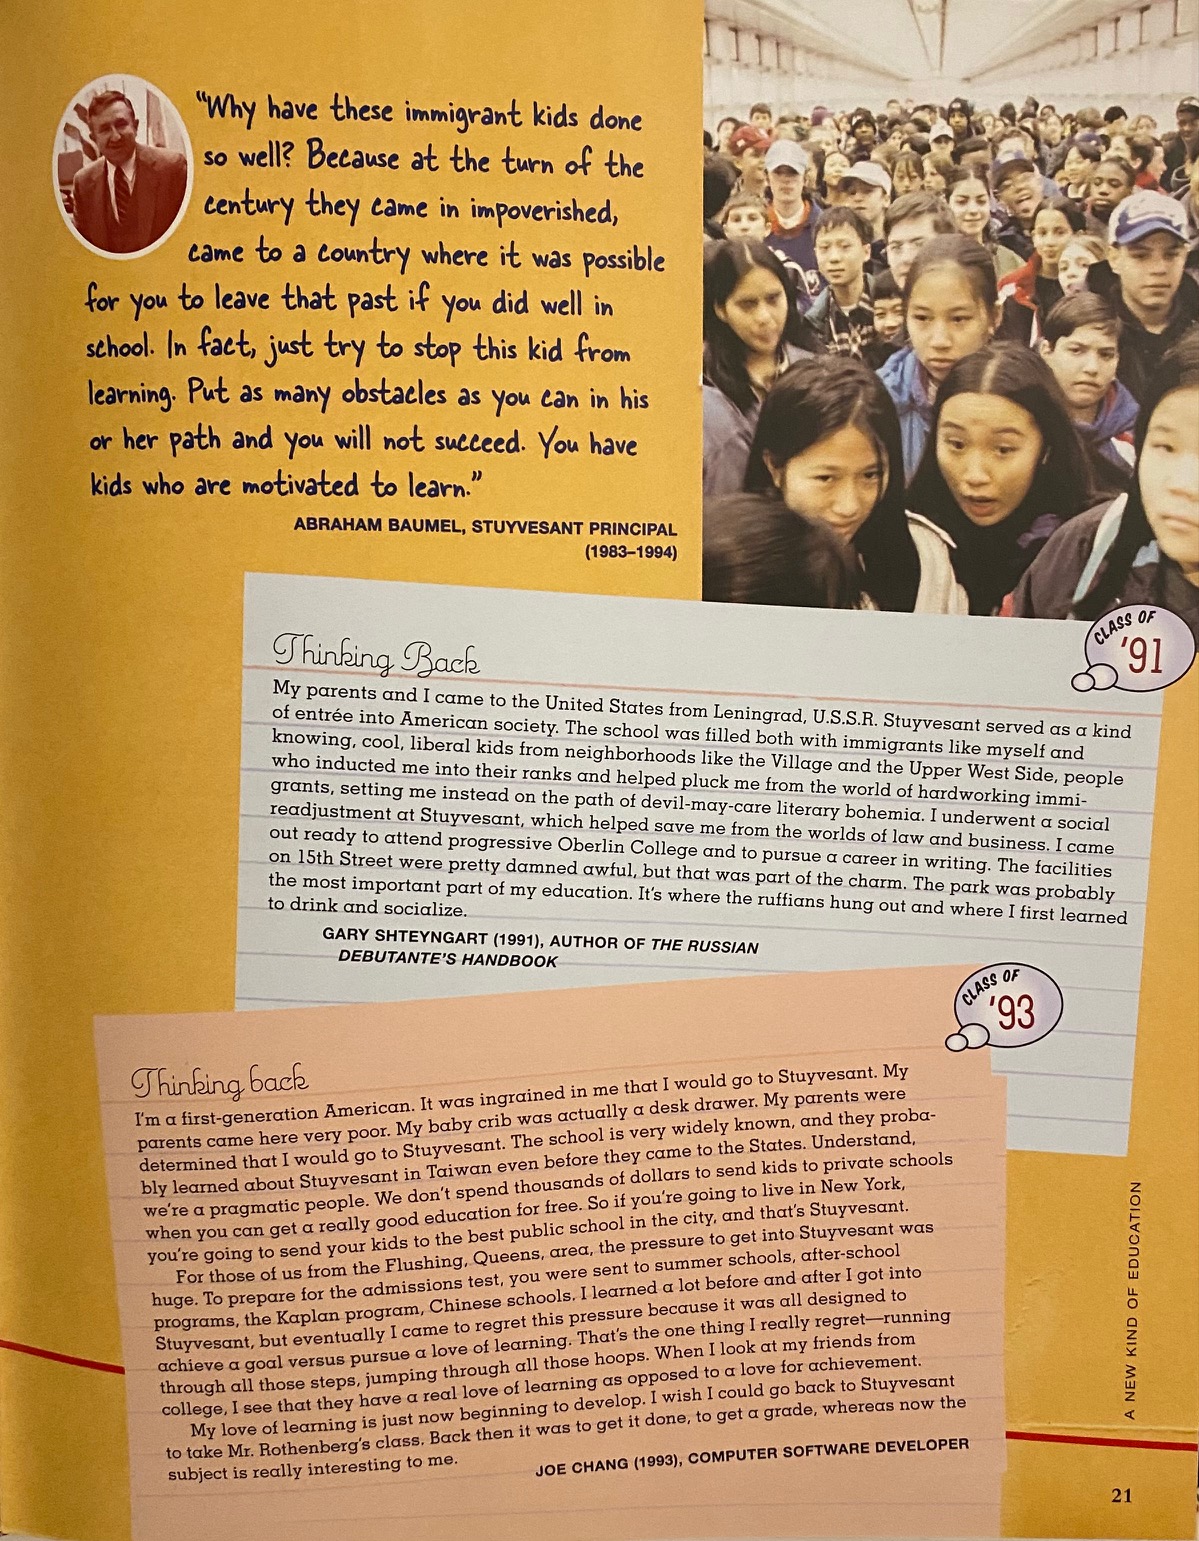 “Why have these immigrant kids done
so well? Because at the turn of the
century they came in impoverished,
came to a country where it was possible
for you to leave that past if you did well in
school. In fact, just try to stop this kid from
learning. Put as many obstacles as you can in his
or her path and you will not succeed. You have
kids who are motivated to learn.”
ABRAHAM BAUMEL, STUYVESANT PRINCIPAL
(1983–1994)
CLASS OF
’91
Thinking Back
My parents and I came to the United States from Leningrad, U.S.S.R. Stuyvesant served as a kind
of entrée into American society. The school was filled both with immigrants like myself and
knowing, cool, liberal kids from neighborhoods like the Village and the Upper West Side, people
who inducted me into their ranks and helped pluck me from the world of hardworking immi-
grants, setting me instead on the path of devil-may-care literary bohemia. I underwent a social
readjustment at Stuyvesant, which helped save me from the worlds of law and business. I came
out ready to attend progressive Oberlin College and to pursue a career in writing. The facilities
on 15th Street were pretty damned awful, but that was part of the charm. The park was probably
the most important part of my education. It’s where the ruffians hung out and where I first learned
to drink and socialize.
GARY SHTEYNGART (1991), AUTHOR OF THE RUSSIAN
DEBUTANTE’S HANDBOOK
CLASS OF
’93
Thinking back
I’m a first-generation American. It was ingrained in me that I would go to Stuyvesant. My
parents came here very poor. My baby crib was actually a desk drawer. My parents were
determined that I would go to Stuyvesant. The school is very widely known, and they proba-
bly learned about Stuyvesant in Taiwan even before they came to the States. Understand,
we’re a pragmatic people. We don’t spend thousands of dollars to send kids to private schools
when you can get a really good education for free. So if you’re going to live in New York,
you’re going to send your kids to the best public school in the city, and that’s Stuyvesant.
For those of us from the Flushing, Queens, area, the pressure to get into Stuyvesant was
huge. To prepare for the admissions test, you were sent to summer schools, after-school
programs, the Kaplan program, Chinese schools. I learned a lot before and after I got into
Stuyvesant, but eventually I came to regret this pressure because it was all designed to
achieve a goal versus pursue a love of learning. That’s the one thing I really regret—running
through all those steps, jumping through all those hoops. When I look at my friends from
college, I see that they have a real love of learning as opposed to a love for achievement.
My love of learning is just now beginning to develop. I wish I could go back to Stuyvesant
to take Mr. Rothenberg’s class. Back then it was to get it done, to get a grade, whereas now the
subject is really interesting to me.
JOE CHANG (1993), COMPUTER SOFTWARE DEVELOPER
A NEW KIND OF EDUCATION
21